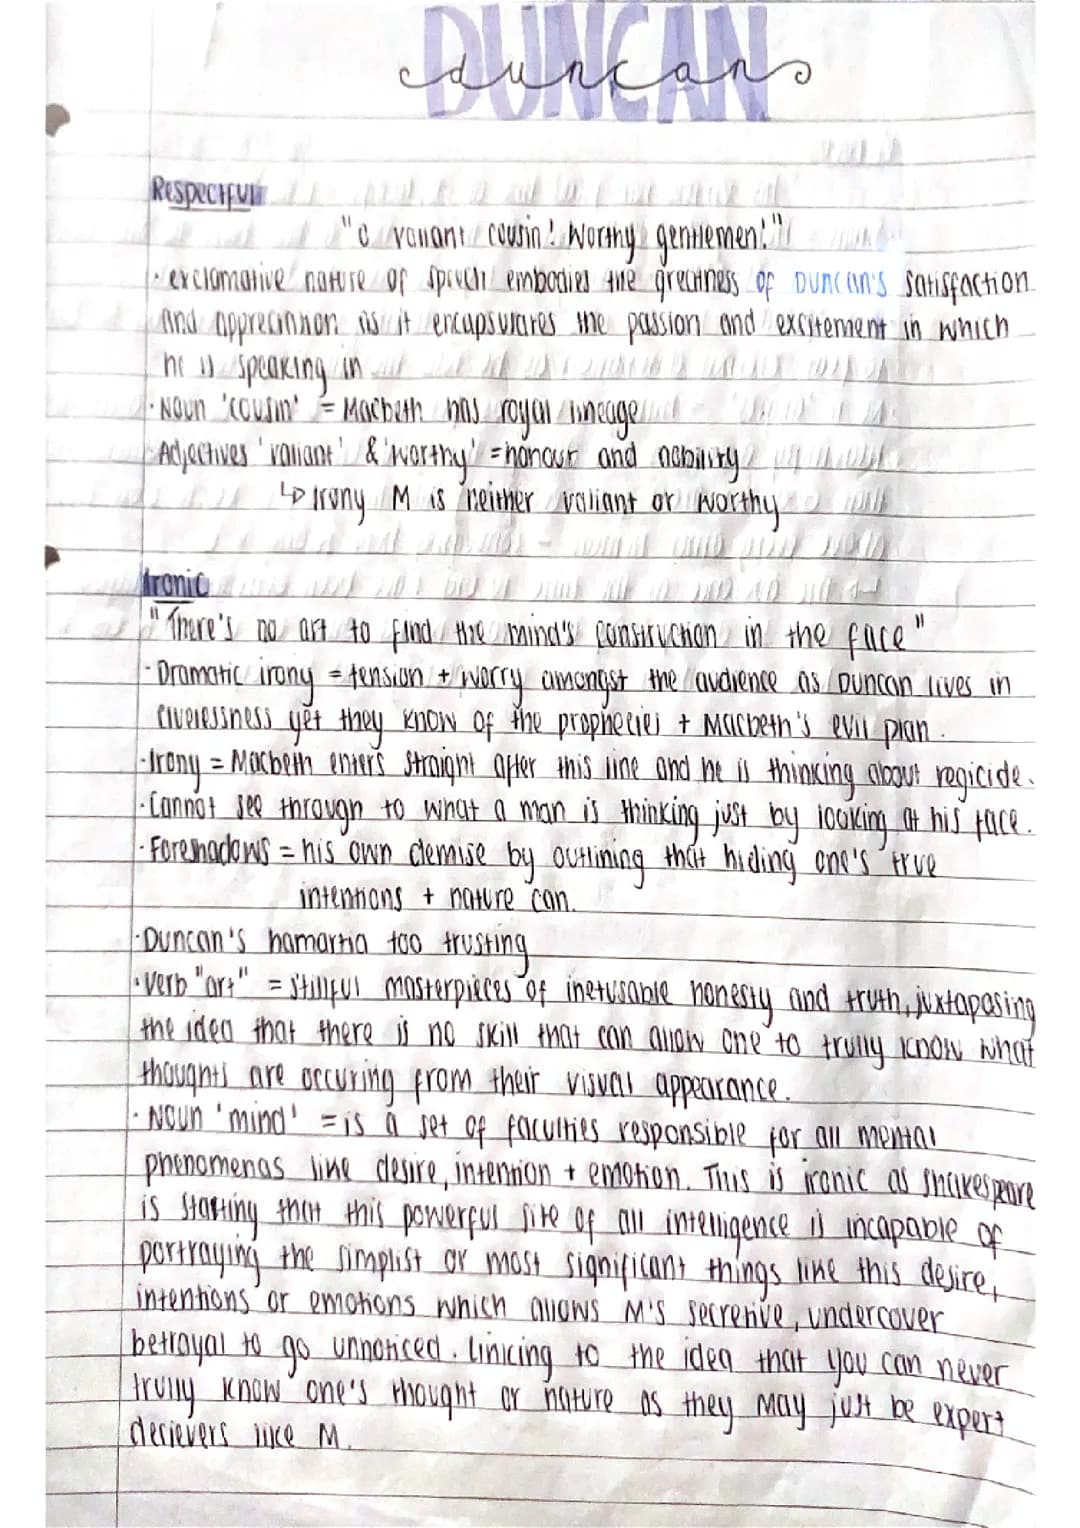 DUNCAN
duncan
Respectful
"O valiant cousin! Worthy gentlemen!"
· exclamative nature of speech embodies the greatness of Duncan's satisfaction
and appreciation as it encapsulates the passion and excitement in which
he is speaking in
· Noun 'cousin' = Macbeth has royal lineage
Adjectives 'valiant' & 'worthy' = honour and nobility
↳ Irony M is neither valiant or worthy
Ironic
"There's no art to find the mind's construction in the face"
· Dramatic irony = tension + worry amongst the audience as Duncan lives in
yet they know of the prophecies + Macbeth's evil plan.
· Irony = Macbeth enters straight after this line and he is thinking about regicide.
· Cannot see through to what a man is thinking just by looking at his face.
· Foreshadows = his own demise by outlining that hiding one's true
intentions + nature can.
· Duncan's hamartia too trusting
· Verb "art" = masterpieces of honesty and truth, juxtaposing
the idea that there is no skill that can allow one to trully know what
thoughts are occuring from their visual appearance.
· Noun 'mind' = is a set of faculties responsible for all mental
phenomenas like desire, intention + emotion. This is ironic as Shakespeare
is starting that this powerful site of all intelligence is incapable of
portraying the simplist or most significant things like this desire,
intentions or emotions which allows M's secretive, undercover
betrayal to go unnoticed. Linking to the idea that you can never
trully know one's thought or nature as they may just be expert
decievers like M.